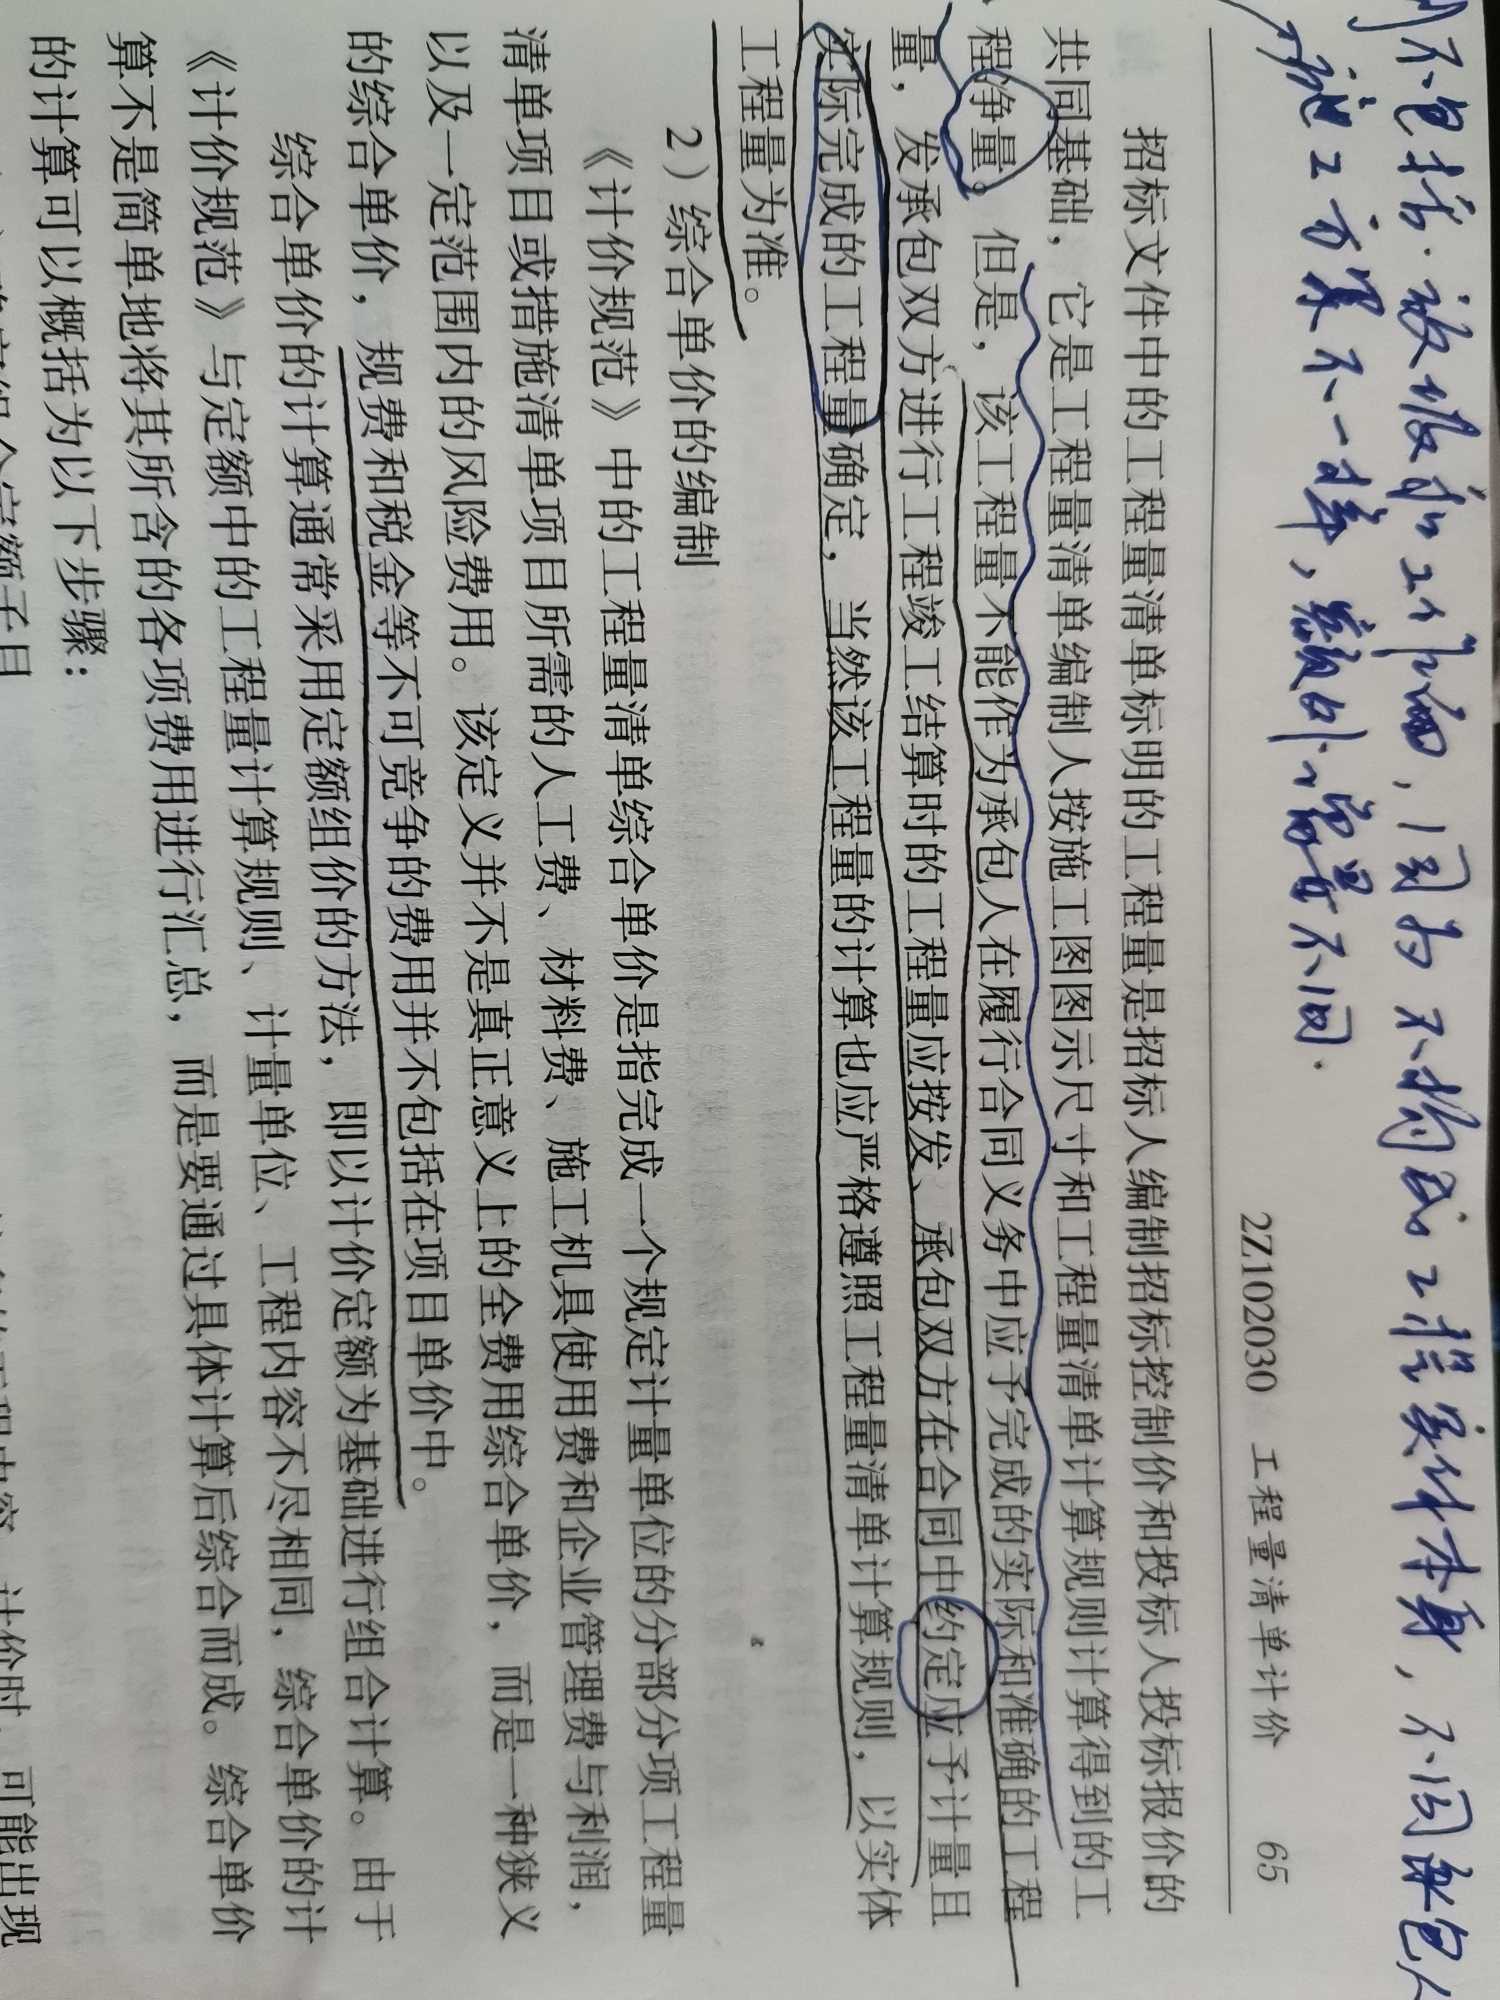 不包括放坡和工作面,因为不构成工程实体本身,不同承包人
施工方案不一样,额外
不同.
2Z102030 工程量清单计价 65
招标文件中的工程量清单标明的工程量是招标人编制招标控制价和投标人投标报价的
共同基础,它是工程量清单编制人按施工图图示尺寸和工程量清单计算规则计算得到的工
程净量。但是,该工程量不能作为承包人在履行合同义务中应予完成的实际和准确的工程
量,发承包双方进行工程竣工结算时的工程量应按发、承包双方在合同中约定应予计量且
实际完成的工程量确定,当然该工程量的计算也应严格遵照工程量清单计算规则,以实体
工程量为准。
2)综合单价的编制
《计价规范》中的工程量清单综合单价是指完成一个规定计量单位的分部分项工程量
清单项目或措施清单项目所需的人工费、材料费、施工机具使用费和企业管理费与利润,
以及一定范围内的风险费用。该定义并不是真正意义上的全费用综合单价,而是一种狭义
的综合单价,规费和税金等不可竞争的费用并不包括在项目单价中。
综合单价的计算通常采用定额组价的方法,即以计价定额为基础进行组合计算。由于
《计价规范》与定额中的工程量计算规则、计量单位、工程内容不尽相同,综合单价的计
算不是简单地将其所含的各项费用进行汇总,而是要通过具体计算后综合而成。综合单价
的计算可以概括为以下步骤: